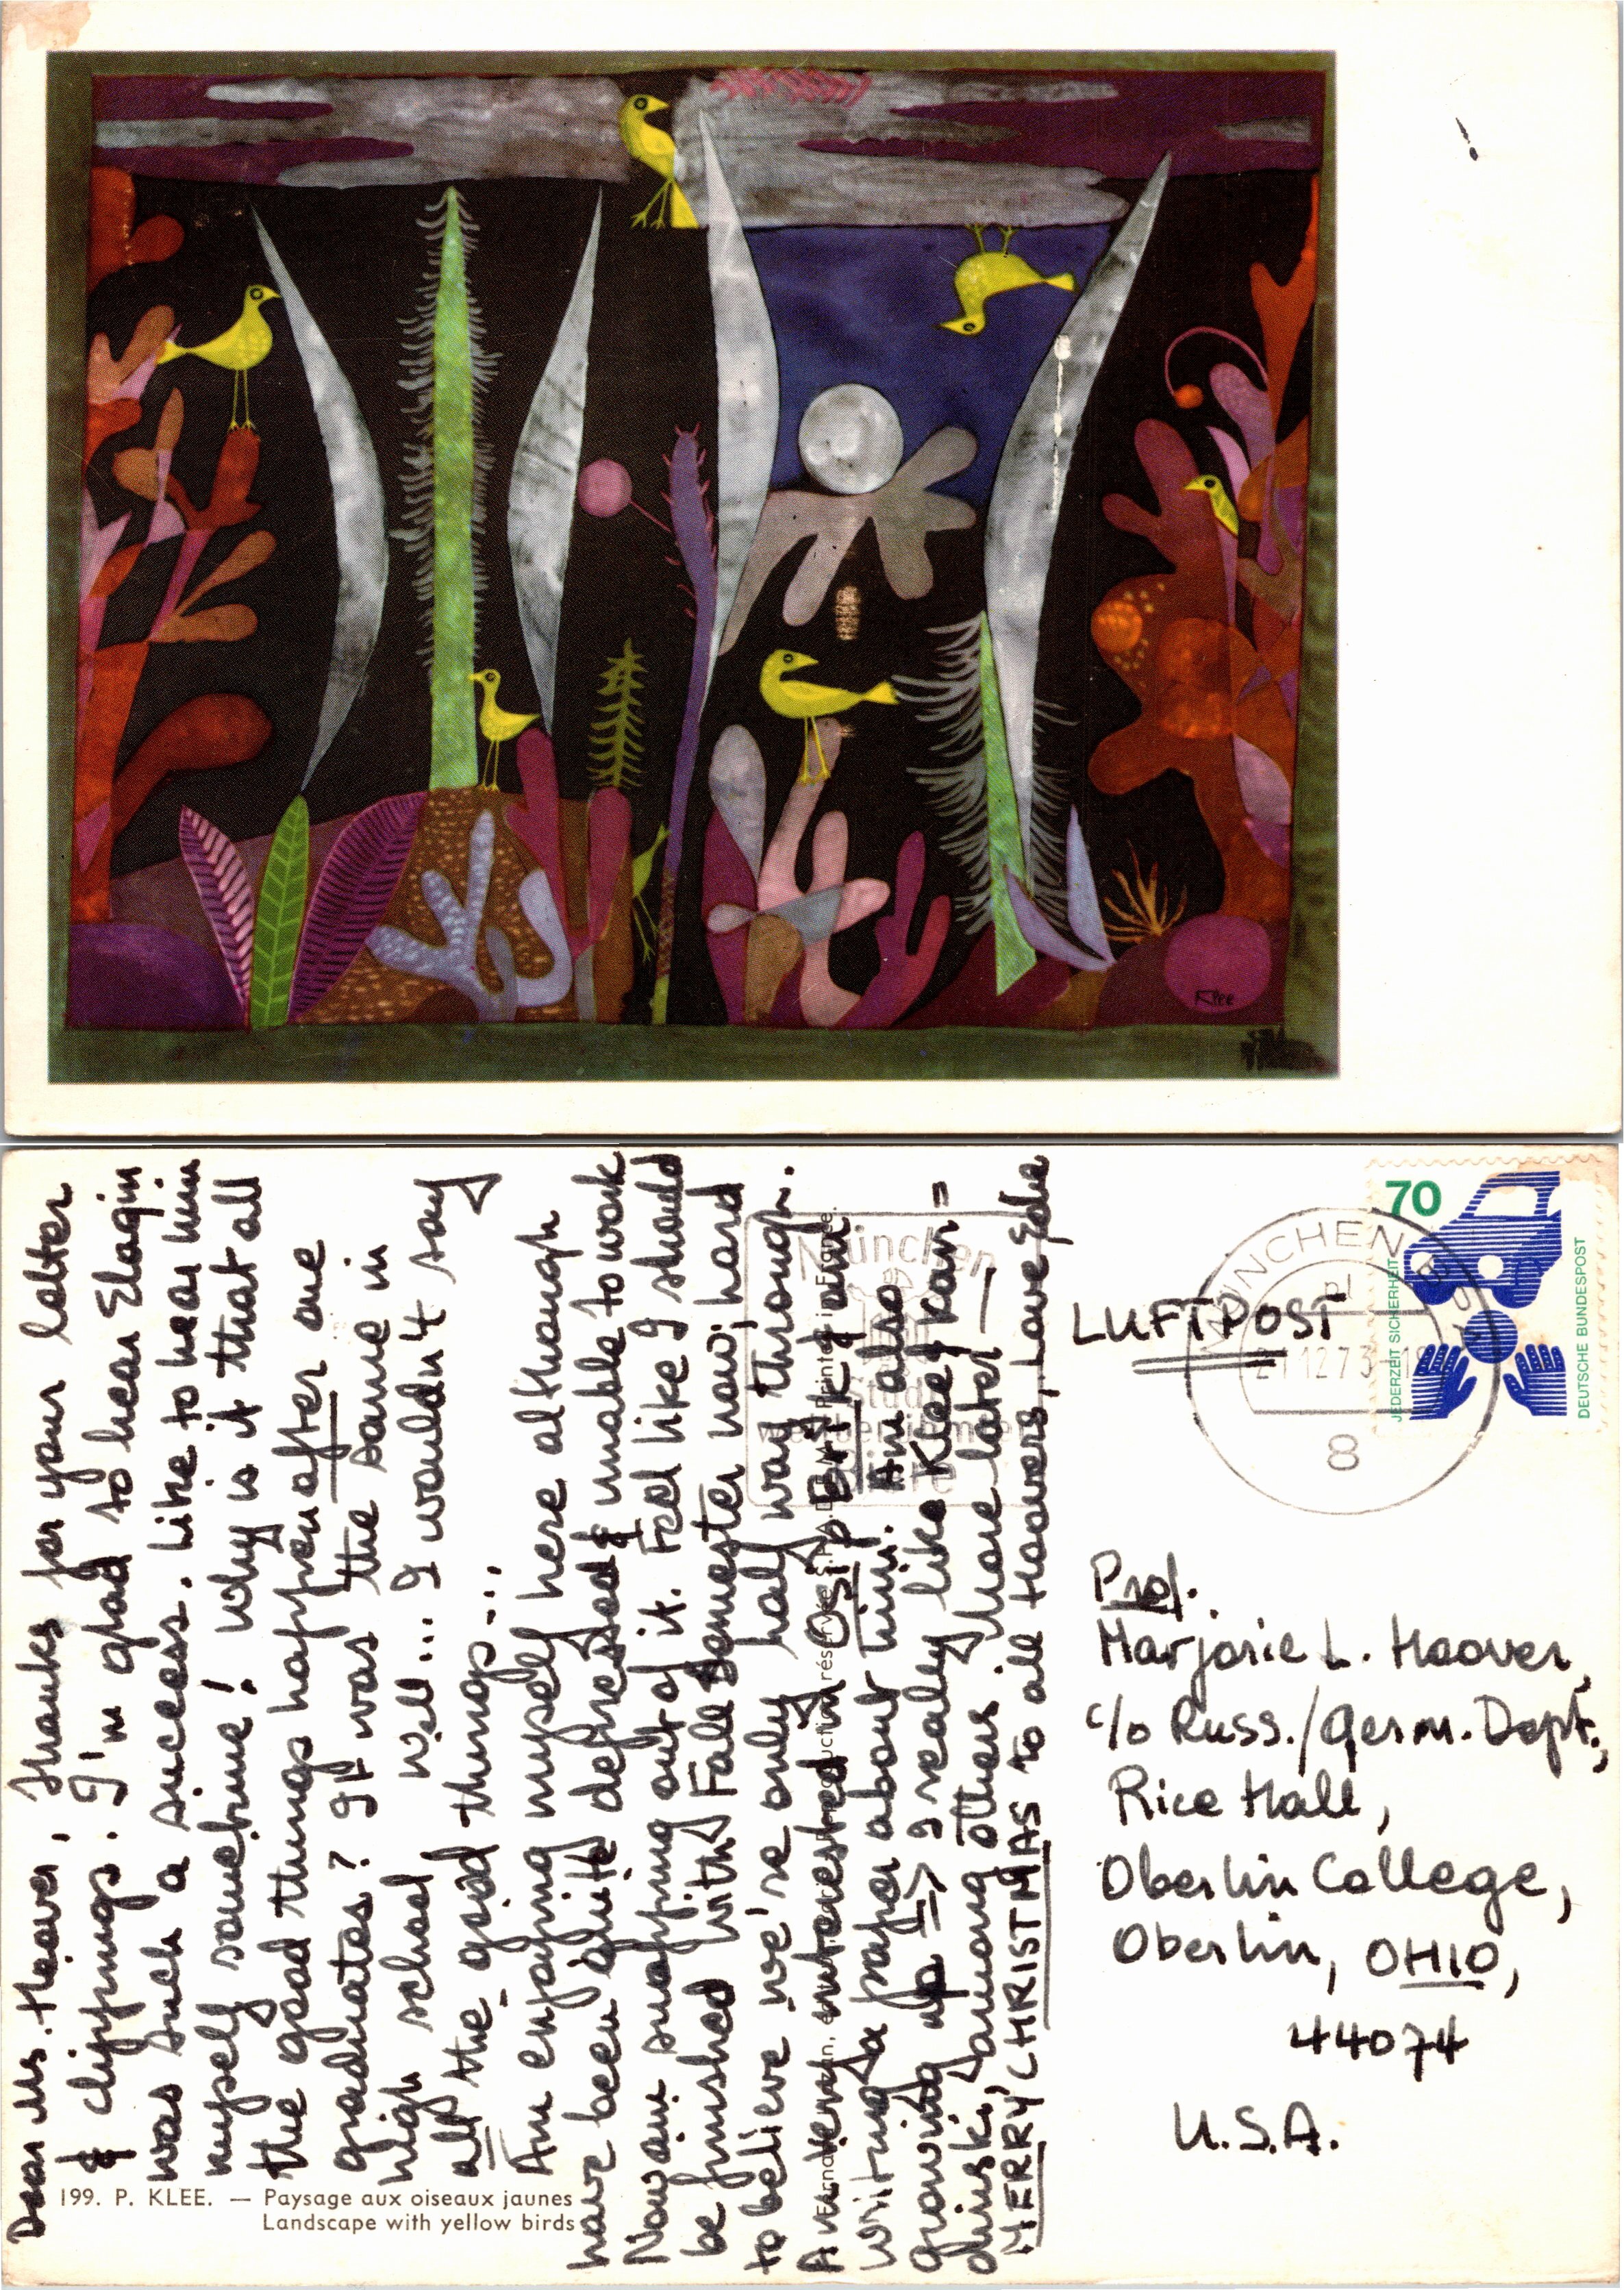 Klee
Dear Ms. Hoover, Thanks for your letter
& clippings. I'm glad to hear Elagin
was such a success. Like to hear him
myself sometime! Why is it that all
the good things happen after one
graduates? It was the same in
high school well... I wouldn't say
all the good things...
Am enjoying myself here although
have been quite depressed & unable to work
Now am snapping out of it. Feel like I should
be finished with Fall Semester now; hard
to believe we're only half way through.
Am very interested in Osip Brik & am
writing a paper about him. Am also
growing up => I really like Klee, Kan=
dinski, among others. More later —
MERRY CHRISTMAS to all Hoovers, Love
199. P. KLEE. — Paysage aux oiseaux jaunes
Landscape with yellow birds
Printed in France.
München
Stadt
LUFTPOST
70
JEDERZEIT SICHERHEIT
DEUTSCHE BUNDESPOST
MÜNCHEN
pl
8
Prof.
Marjorie L. Hoover,
c/o Russ./Germ. Dept.,
Rice Hall,
Oberlin College,
Oberlin, OHIO,
44074
U.S.A.